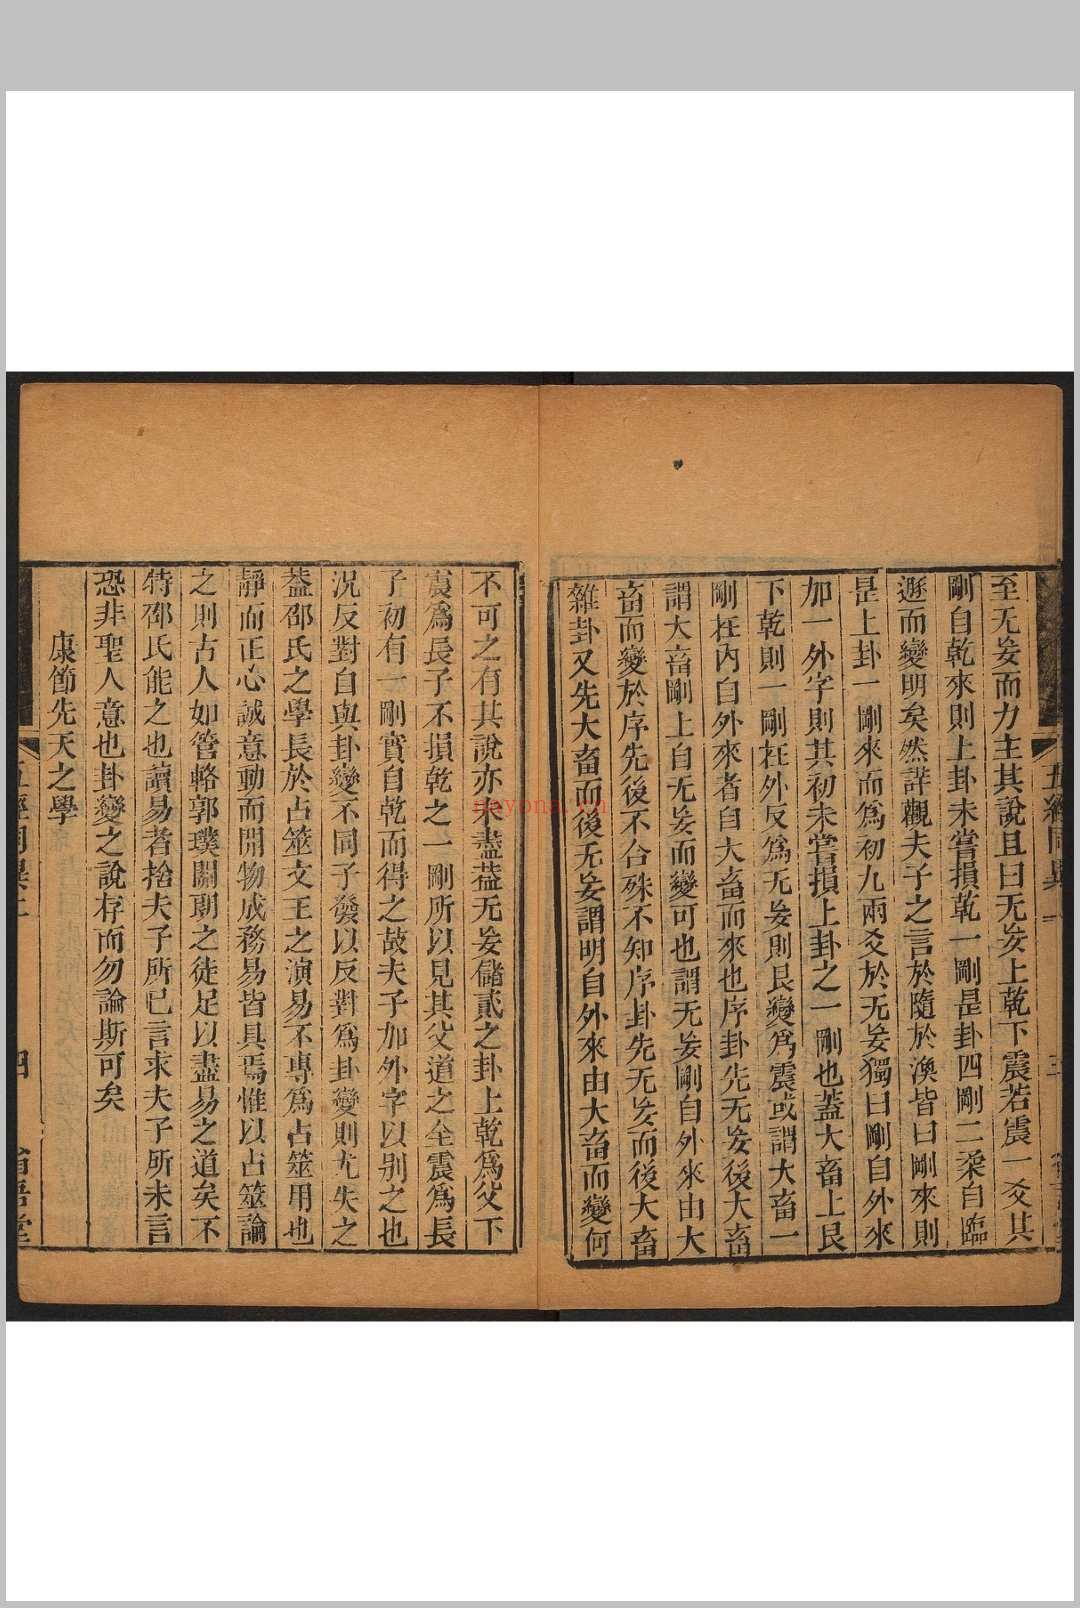 至无妄而力主其說且曰无妄上乾下震若震一爻其
剛自乾來則上卦未嘗損乾一剛是卦四剛二柔自臨
遯而變明矣然詳觀夫子之言於隨於渙皆曰剛來則
是上卦一剛來而爲初九兩爻於无妄獨曰剛自外來
加一外字則其初未嘗損上卦之一剛也蓋大畜上艮
下乾則一剛在外反爲无妄則艮變爲震或謂大畜一
剛在內自外來者自大畜而來也序卦先无妄後大畜
謂大畜剛上自无妄而變可也謂无妄剛自外來由大
畜而變於序先後不合殊不知序卦先无妄而後大畜
雜卦又先大畜而後无妄謂明自外來由大畜而變何
不可之有其說亦未盡蓋无妄儲貳之卦上乾爲父下
震爲長子不損乾之一剛所以見其父道之全震爲長
子初有一剛實自乾而得之故夫子加外字以別之也
況反對自與卦變不同子發以反對爲卦變則尤失之
蓋邵氏之學長於占筮文王之演易不專爲占筮用也
靜而正心誠意動而開物成務易皆具焉惟以占筮論
之則古人如管輅郭璞關朗之徒足以盡易之道矣不
特邵氏能之也讀易者捨夫子所已言求夫子所未言
恐非聖人意也卦變之說存而勿論斯可矣
康節先天之學
五經同異二
四
省吾堂
nayona.cn